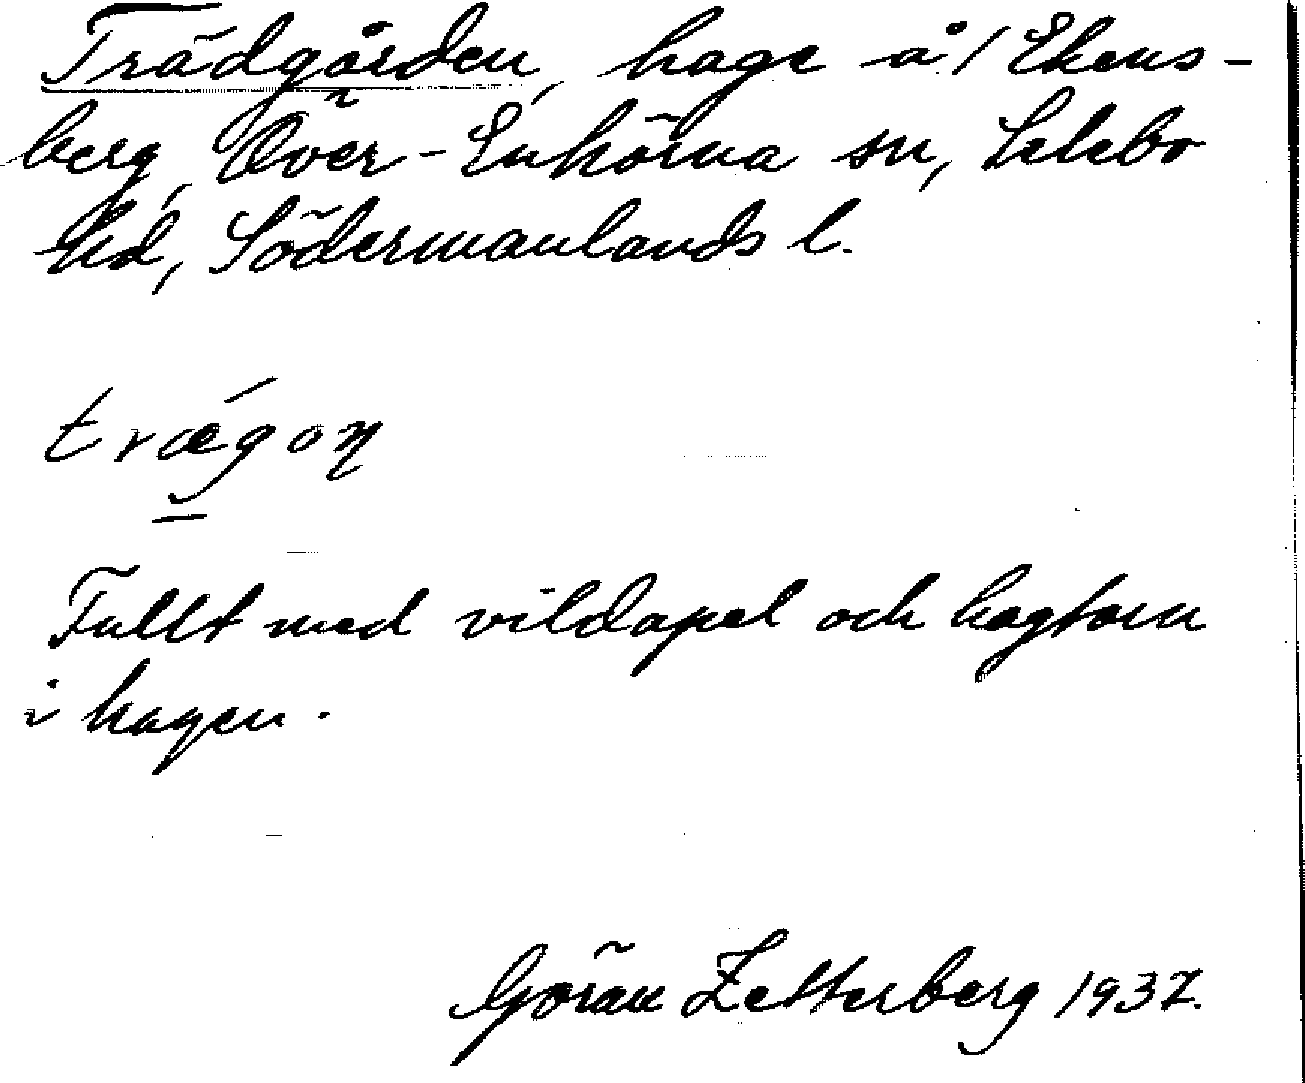 Trädgården, hage å/ Ekens-
berg, Över-Enhörna sn, Selebo
hd, Södermanlands l.
trǽgoṇ
Fullt med vildapel och hagtorn
i hagen.
Göran Zetterberg 1937.